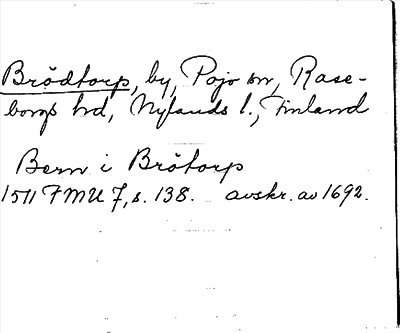 Brödtorp, by, Pojo sn, Rase-
borgs hd, Nylands l., Finland
Bern i Brötorp
1511 FMU 7, s. 138. avskr. av 1692.